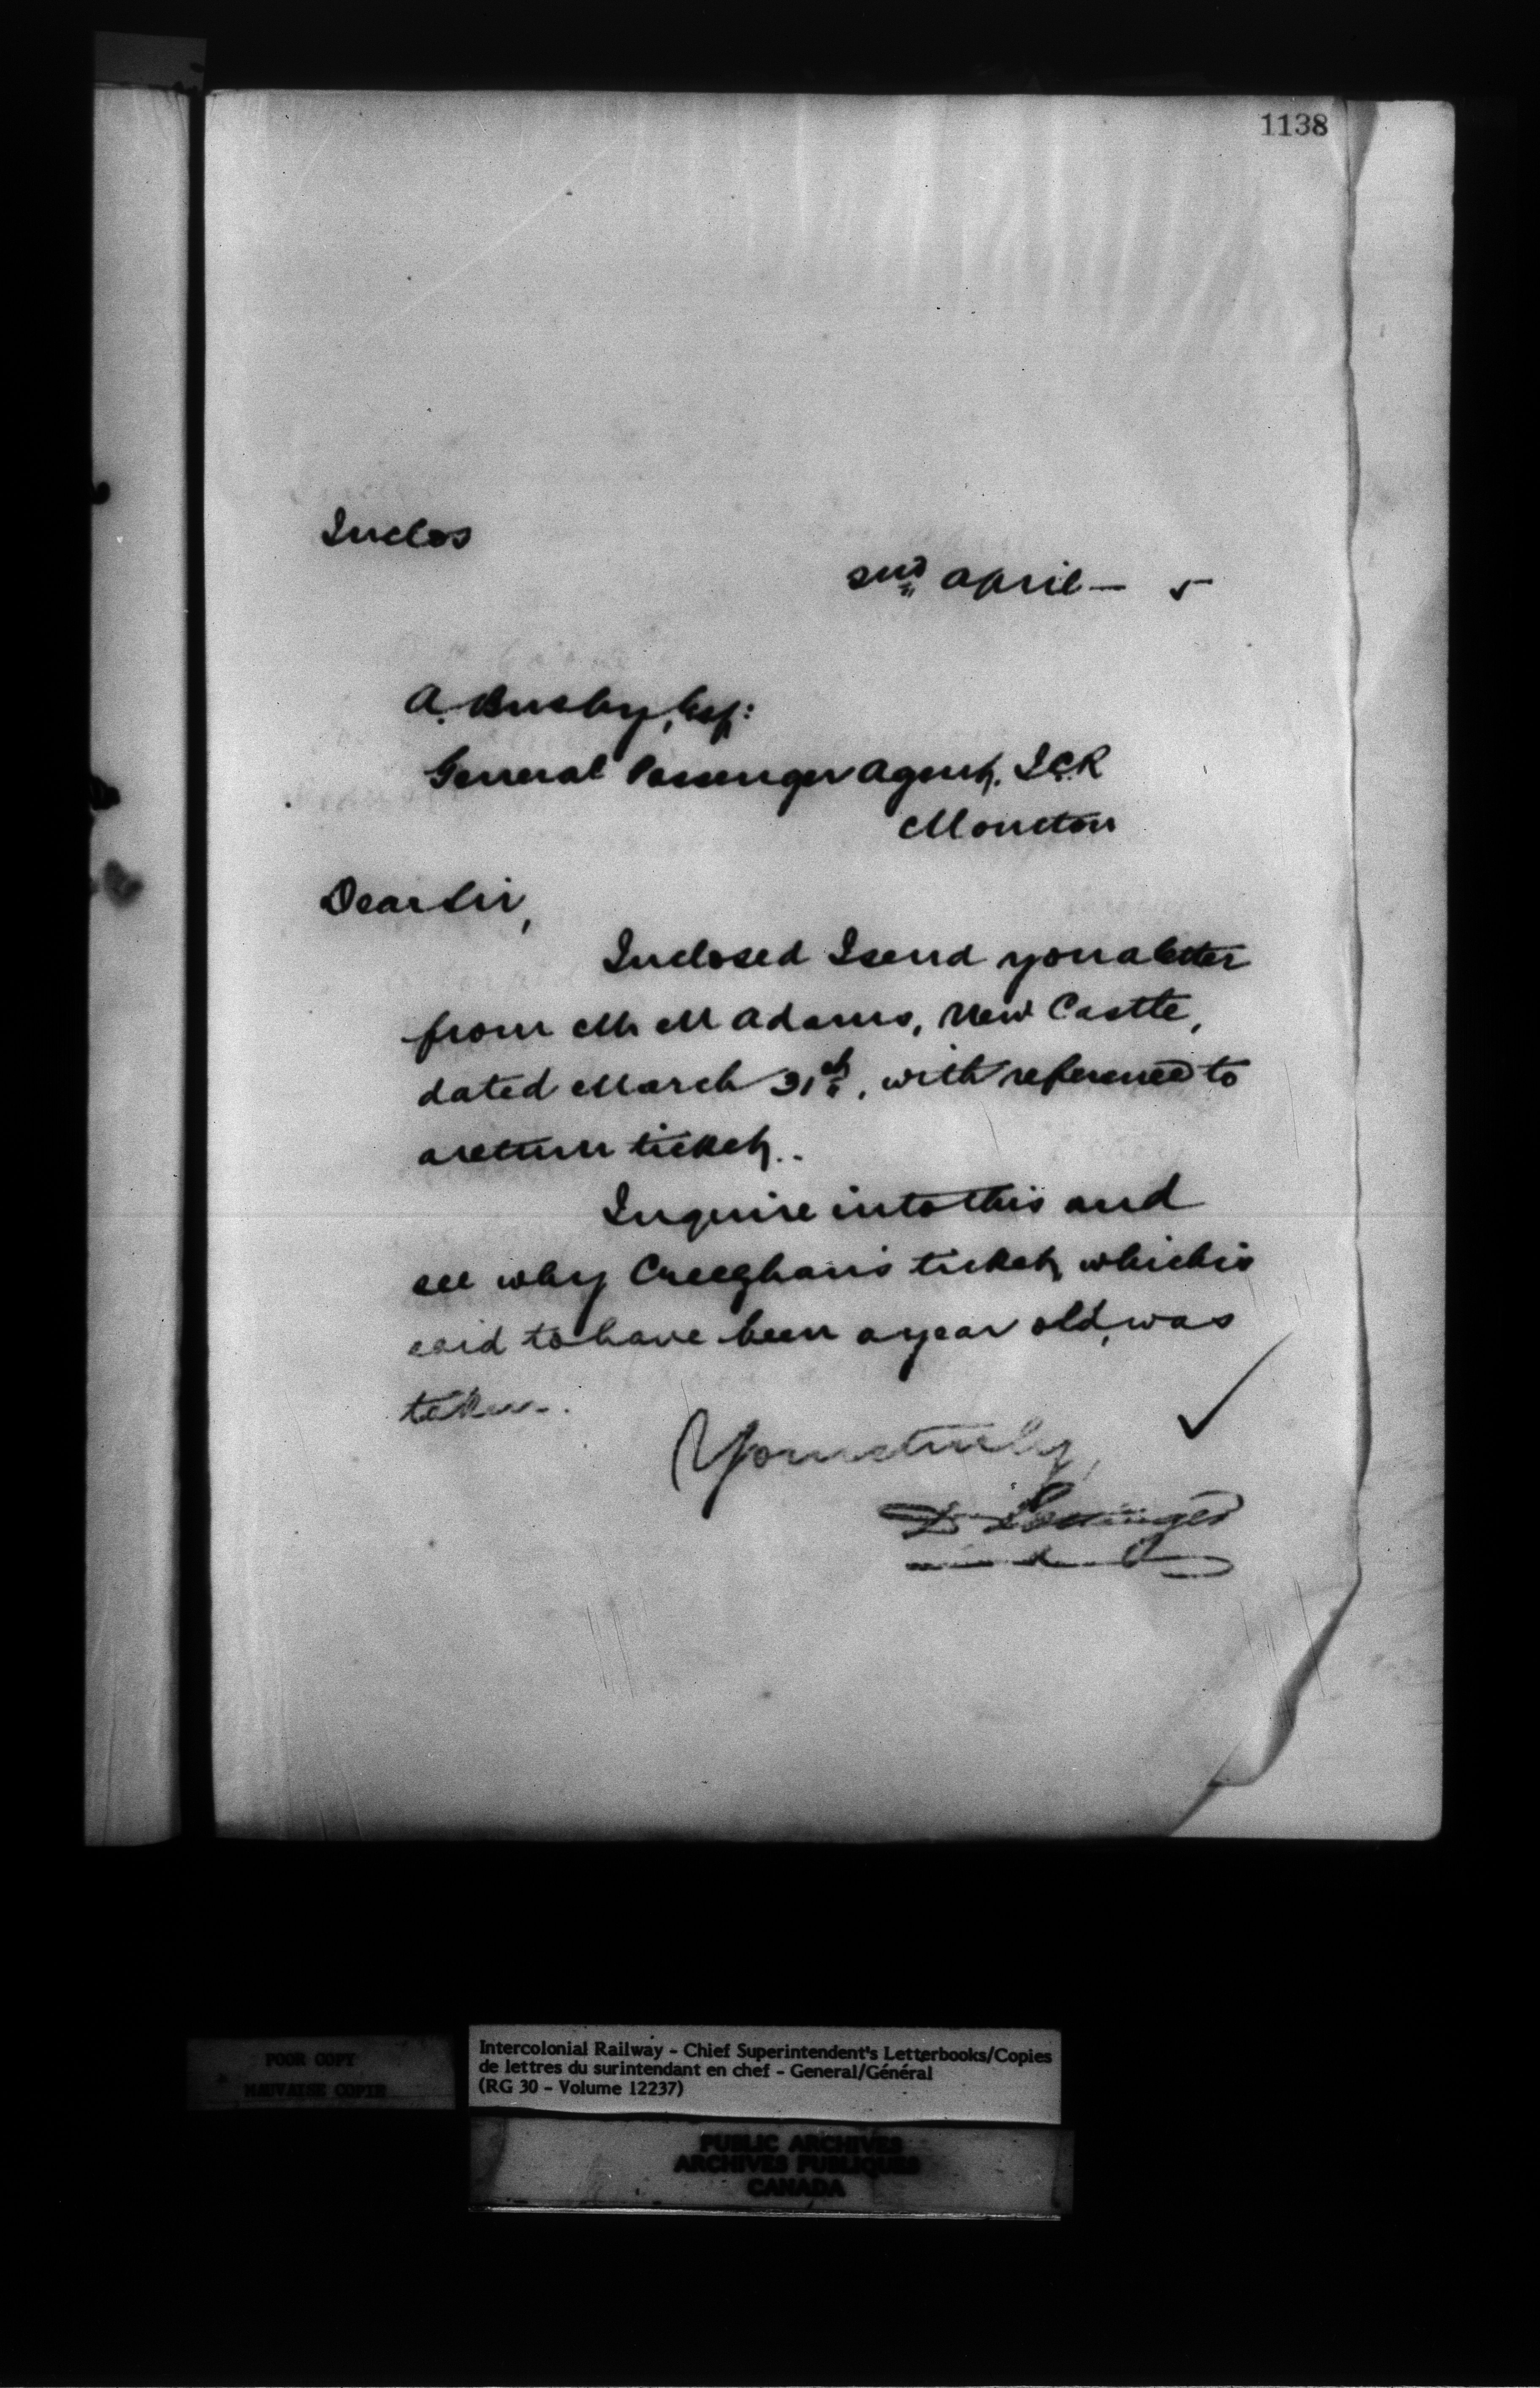 1138
Inclos
2nd April — 5
A. Busby, Esq:
General Passenger Agent, I.C.R
Moncton
Dear Sir,
Inclosed I send you a letter
from Mr M Adams, New Castle,
dated March 31st, with reference to
a return ticket.
Inquire into this and
see why Creeghan's ticket, which is
said to have been a year old, was
taken.
Yours truly,
D Pottinger
POOR COPY
MAUVAISE COPIE
Intercolonial Railway - Chief Superintendent's Letterbooks/Copies
de lettres du surintendant en chef - General/Général
(RG 30 - Volume 12237)
PUBLIC ARCHIVES
ARCHIVES PUBLIQUES
CANADA